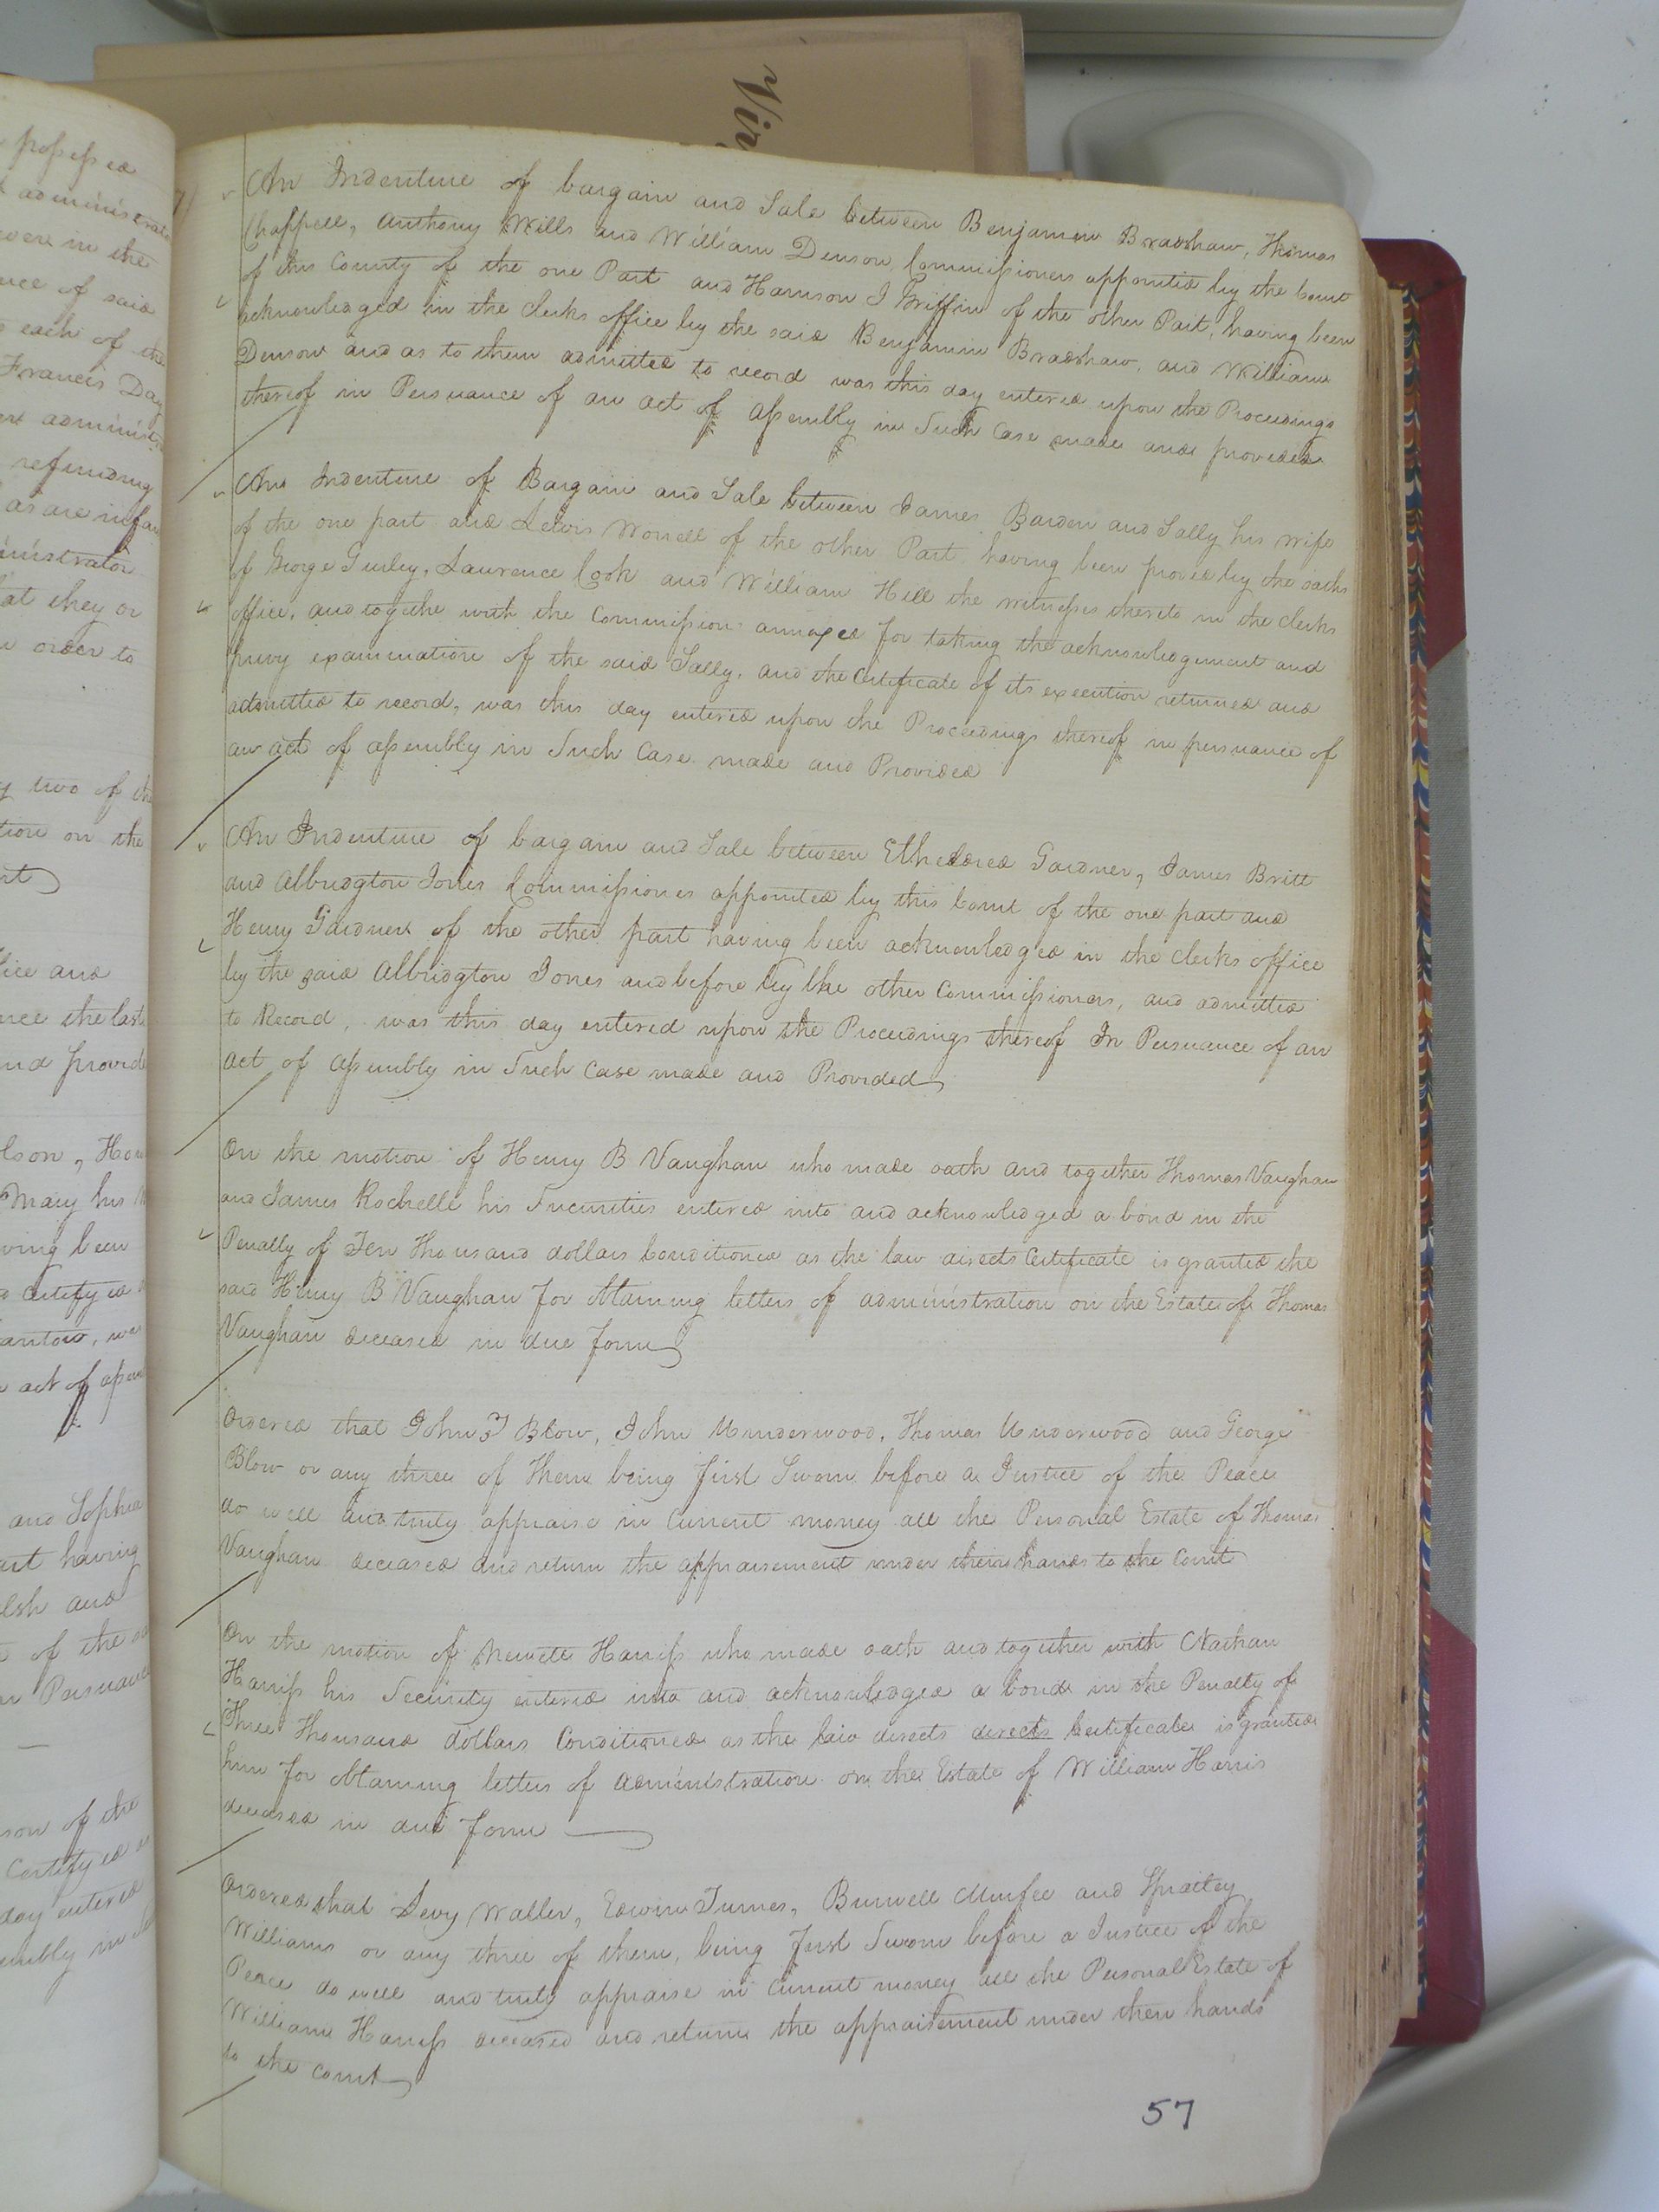 possessed
administrator
even in the
said
each of the
Francis Day
administ
refunding
as are infan
ministrator
at they or
order to
two of the
tion on the
rt
fice and
nce the last
nd provide
lson, How
Mary his
ving been
Certifyed
act of assem
and Sophia
art having
and
of the
Pursuance
son of the
Certifyed
day entered
embly in
Vir
An Indenture of bargain and Sale between Benjamin Bradshaw, Thomas
Chappell, Anthony Mills and William Denson, Commissioners appointed by the Court
of this County of the one Part and Harrison J Griffin of the other Part, having been
acknowledged in the Clerks office by the said Benjamin Bradshaw, and William
Denson and as to them admitted to record was this day entered upon the Proceedings
thereof in Persuance of an act of Assembly in Such Case made and provided
An Indenture of Bargain and Sale between James Barden and Sally his wife
of the one part and Lewis Worrell of the other Part having been proved by the oaths
of George Gurley, Laurence Cook and William Hill the witnesses thereto in the Clerks
office, and togethe with the Commission annexed for taking the acknowledgement and
privy examination of the said Sally, and the Certificate of its execution returned and
admitted to record, was this day entered upon the Proceedings thereof in persuance of
an act of assembly in Such Case made and Provided
An Indenture of bargain and Sale between Etheldred Gardner, James Britt
and Albridgton Jones Commissioners appointed by this Court of the one part and
Henry Gardner of the other part having been acknowledged in the Clerks office
by the said Albridgton Jones and before by the other Commissioners, and admitted
to Record, was this day entered upon the Proceedings thereof In Persuance of an
act of Assembly in Such Case made and Provided
On the motion of Henry B Vaughan who made oath and together Thomas Vaughan
and James Rochelle his Sucurities entered into and acknowledged a bond in the
Penalty of Ten Thousand dollars Conditioned as the law directs Certificate is granted the
said Henry B Vaughan for obtaining letters of administration on the Estate of Thomas
Vaughan deceased in due form
Ordered that John T Blow, John Underwood, Thomas Underwood and George
Blow or any three of them being first Sworn before a Justice of the Peace
do well and truly appraise in Current money all the Personal Estate of Thomas
Vaughan deceased and return the appraisement under their hands to the Court
On the motion of Newitt Harriss who made oath and together with Nathan
Harriss his Security entered into and acknowledged a bond in the Penalty of
Three Thousand dollars Conditioned as the law directs directs Certificate is granted
him for obtaining letters of administration on the Estate of William Harris
deceased in due form
Ordered that Levy Waller, Edwin Turner, Burwell Murfee and Spratley
Williams or any three of them, being first Sworn before a Justice of the
Peace do well and truly appraise in Current money all the Personal Estate of
William Harriss deceased and return the appraisement under their hands
to the Court
57